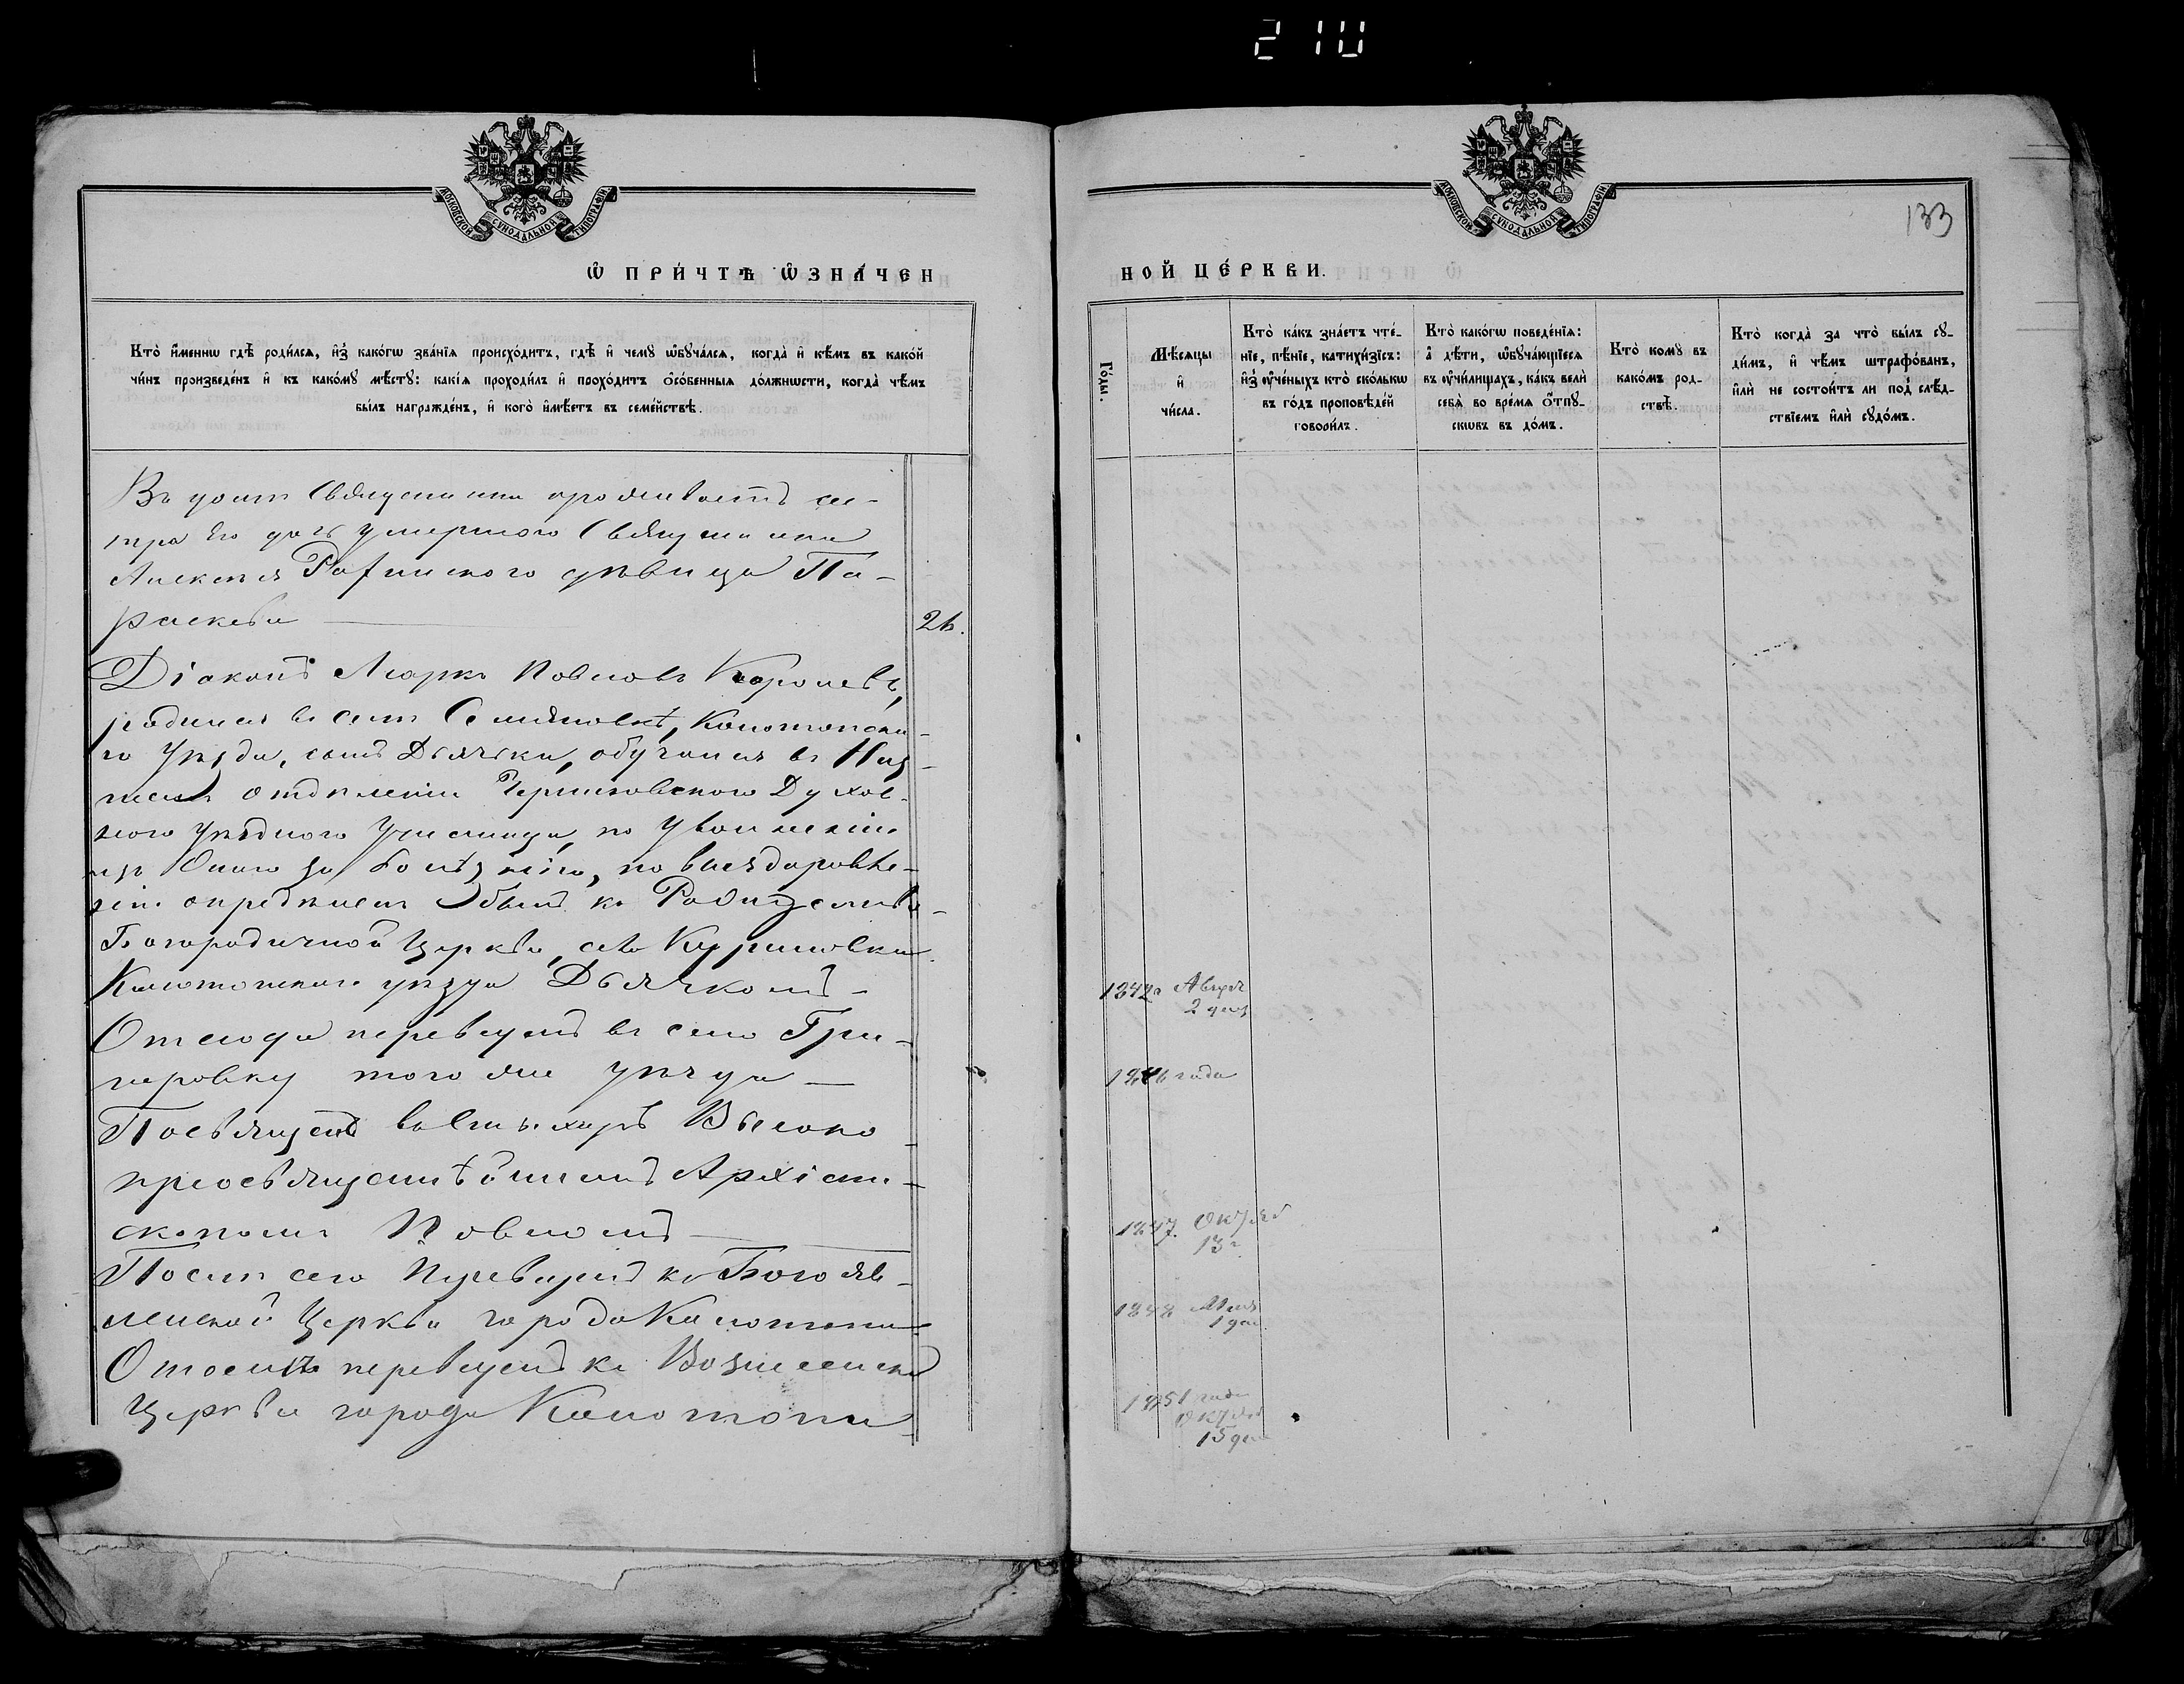 210
МОСКОВСКОЙ СУНОДАЛЬНОЙ ТИПОГРАФІИ
Ѽ ПРИ́ЧТѢ Ѽ҆ЗНА́ЧЕН
Кто̀ и҆́менно гдѣ̀ роди́лсѧ, и҆з̾ како́гѡ зва́нїѧ происхо́дитъ, гдѣ̀ и҆ чемꙋ̀ ѡ҆бꙋча́лсѧ, когда̀ и҆ кѣ́мъ въ како́й
чи́нъ произведе́нъ и҆ къ како́мꙋ мѣ́стꙋ: какі́ѧ проходи́лъ и҆ прохо́дитъ ѻ҆со́бенныѧ до́лжнѡсти, когда̀ чѣ́мъ
бы́лъ награжде́нъ, и҆ кого̀ и҆мѣ́етъ въ семе́йствѣ.
Въ домѣ Священника проживаетъ сес-
тра Его дочь умершого Священника
Алексея дѣвица Па-
раскева
26.
Діаконъ Маркъ Павловъ Королевъ,
родился въ селѣ Семяновкѣ, Конотопска-
го Уѣзда, сынъ Дьячка, обучался въ Низ-
шемъ отдѣленіи Черниговского Духов-
ного уѣздного Училища, по Увольненіи
изъ Оного за болѣзнію, по выздоровле-
ніи опредѣленъ былъ къ Рождество-
Богородичной Церкви, села Куриловки
Конотопского уѣзда Дьячкомъ
Отсюда переведенъ въ село Гри-
горовку того же уѣзда
Посвященъ въ Стихарь Высоко-
преосвященнѣйшимъ Архіепи-
скопомъ Павломъ
Послѣ сего Переведенъ къ Богояв-
ленской Церкви города Конотопа
Отселѣ переведенъ къ Вознесенской
Церкви города Конотопа
МОСКОВСКОЙ СУНОДАЛЬНОЙ ТИПОГРАФІИ
133
НОЙ ЦЕ́РКВИ.
Го́ды.
Мѣ́сѧцы
и҆
чи́сла.
Кто̀ ка́къ зна́етъ чте́-
нїе, пѣ́нїе, катихи́зїсъ:
и҆з̾ ᲂу҆че́ныхъ кто̀ ско́лькѡ
въ го́дъ проповѣ́дей
говори́лъ.
Кто̀ како́гѡ поведе́нїѧ:
а҆ дѣ́ти, ѡ҆бꙋча́ющїесѧ
въ ᲂу҆чи́лищахъ, ка́къ велѝ
себѧ̀ во вре́мѧ ѻ҆́тпꙋ-
скѡвъ въ до́мъ.
Кто̀ комꙋ̀ въ
како́мъ род-
ствѣ̀.
Кто̀ когда̀ за что̀ бы́лъ сꙋ-
ди́мъ, и҆ чѣ́мъ штрафо́ванъ,
и҆лѝ не состои́тъ ли под̾ слѣ́д-
ствїемъ и҆лѝ сꙋдо́мъ.
1842 Август
2 дня
1846 года
1847. Октяб
13
1848 Мая
1 дня
1851 года
Октяб
15 дня